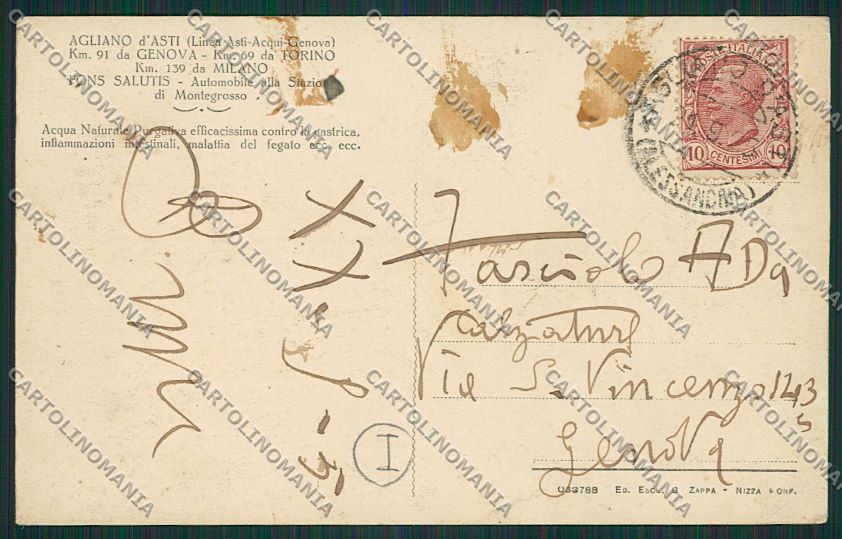 AGLIANO d'ASTI (Linea Asti-Acqui-Genova)
Km. 91 da GENOVA - Km. 69 da TORINO
Km. 139 da MILANO
FONS SALUTIS - Automobile alla Stazione
di Montegrosso
Acqua Naturale Purgativa efficacissima contro la gastrica,
infiammazioni intestinali, malattia del fegato ecc. ecc.
POSTE ITALIANE
10 CENTESIMI 10
(ALESSANDRIA)
Fasciolo ADa
Calzature
Via S. Vincenzo 143
Genova
I
033788 Ed. Esc. G Zappa - Nizza Monf.
CARTOLINOMANIA